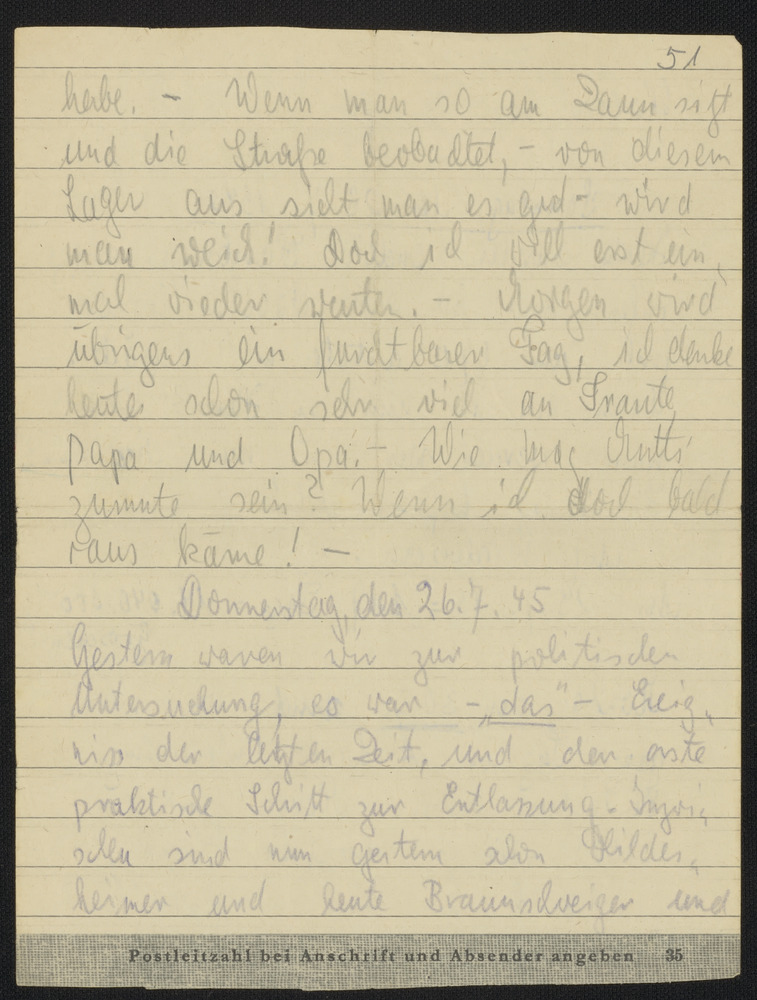 51
habe. - Wenn man so am Zaun sitzt
und die Straße beobachtet, - von diesem
Lager aus sieht man es gut - wird
man weich! Doch ich will erst ein-
mal wieder warten. - Morgen wird
übrigens ein furchtbarer Tag, ich denke
heute schon sehr viel an Traute,
Papa und Opa. - Wie mag Mutti
zumute sein? Wenn ich doch bald
raus käme! -
Donnerstag, den 26.7.45
Gestern waren wir zur politischen
Untersuchung, es war - „das" - Ereig-
nis der letzten Zeit, und der erste
praktische Schritt zur Entlassung. Inzwi-
schen sind nun gestern schon Hildes-
heimer und heute Braunschweiger und
Postleitzahl bei Anschrift und Absender angeben 35